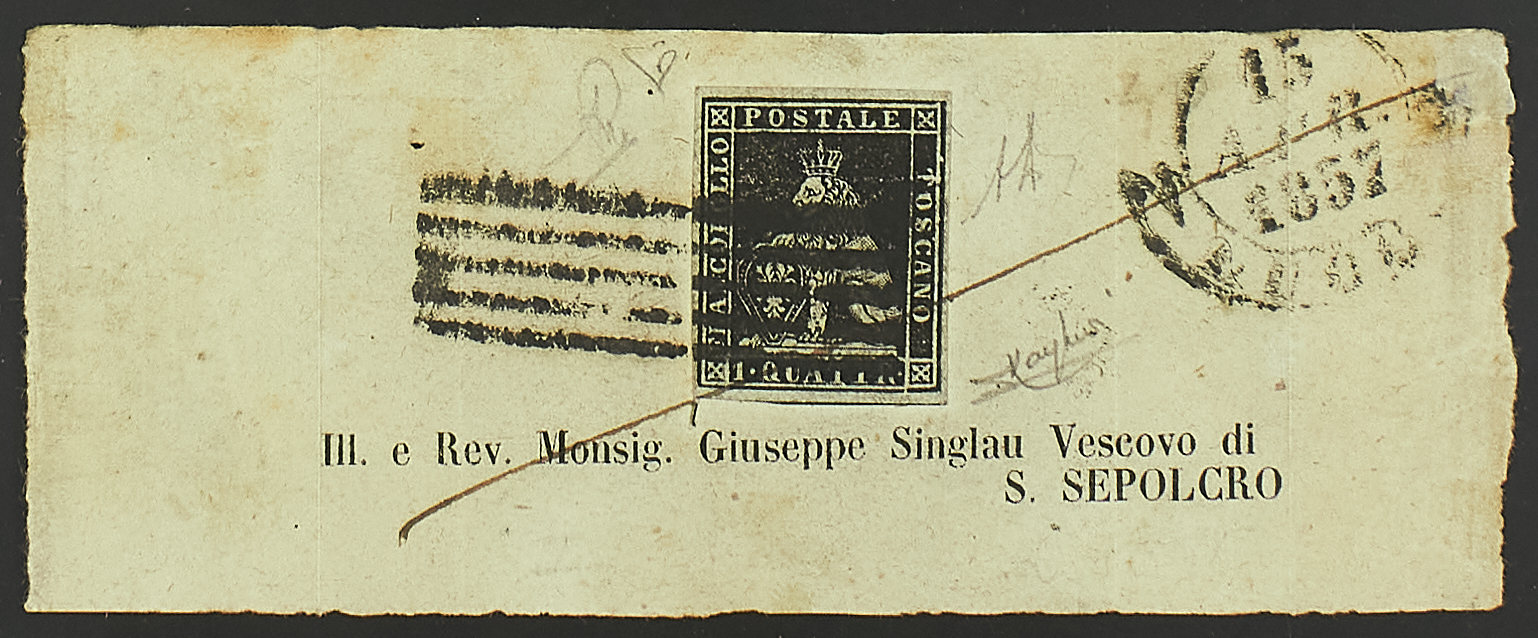 15
MAR.
1857
POSTALE
FRANCOBOLLO
TOSCANO
1·QUATTR.
Ill. e Rev. Monsig. Giuseppe Singlau Vescovo di
S. SEPOLCRO